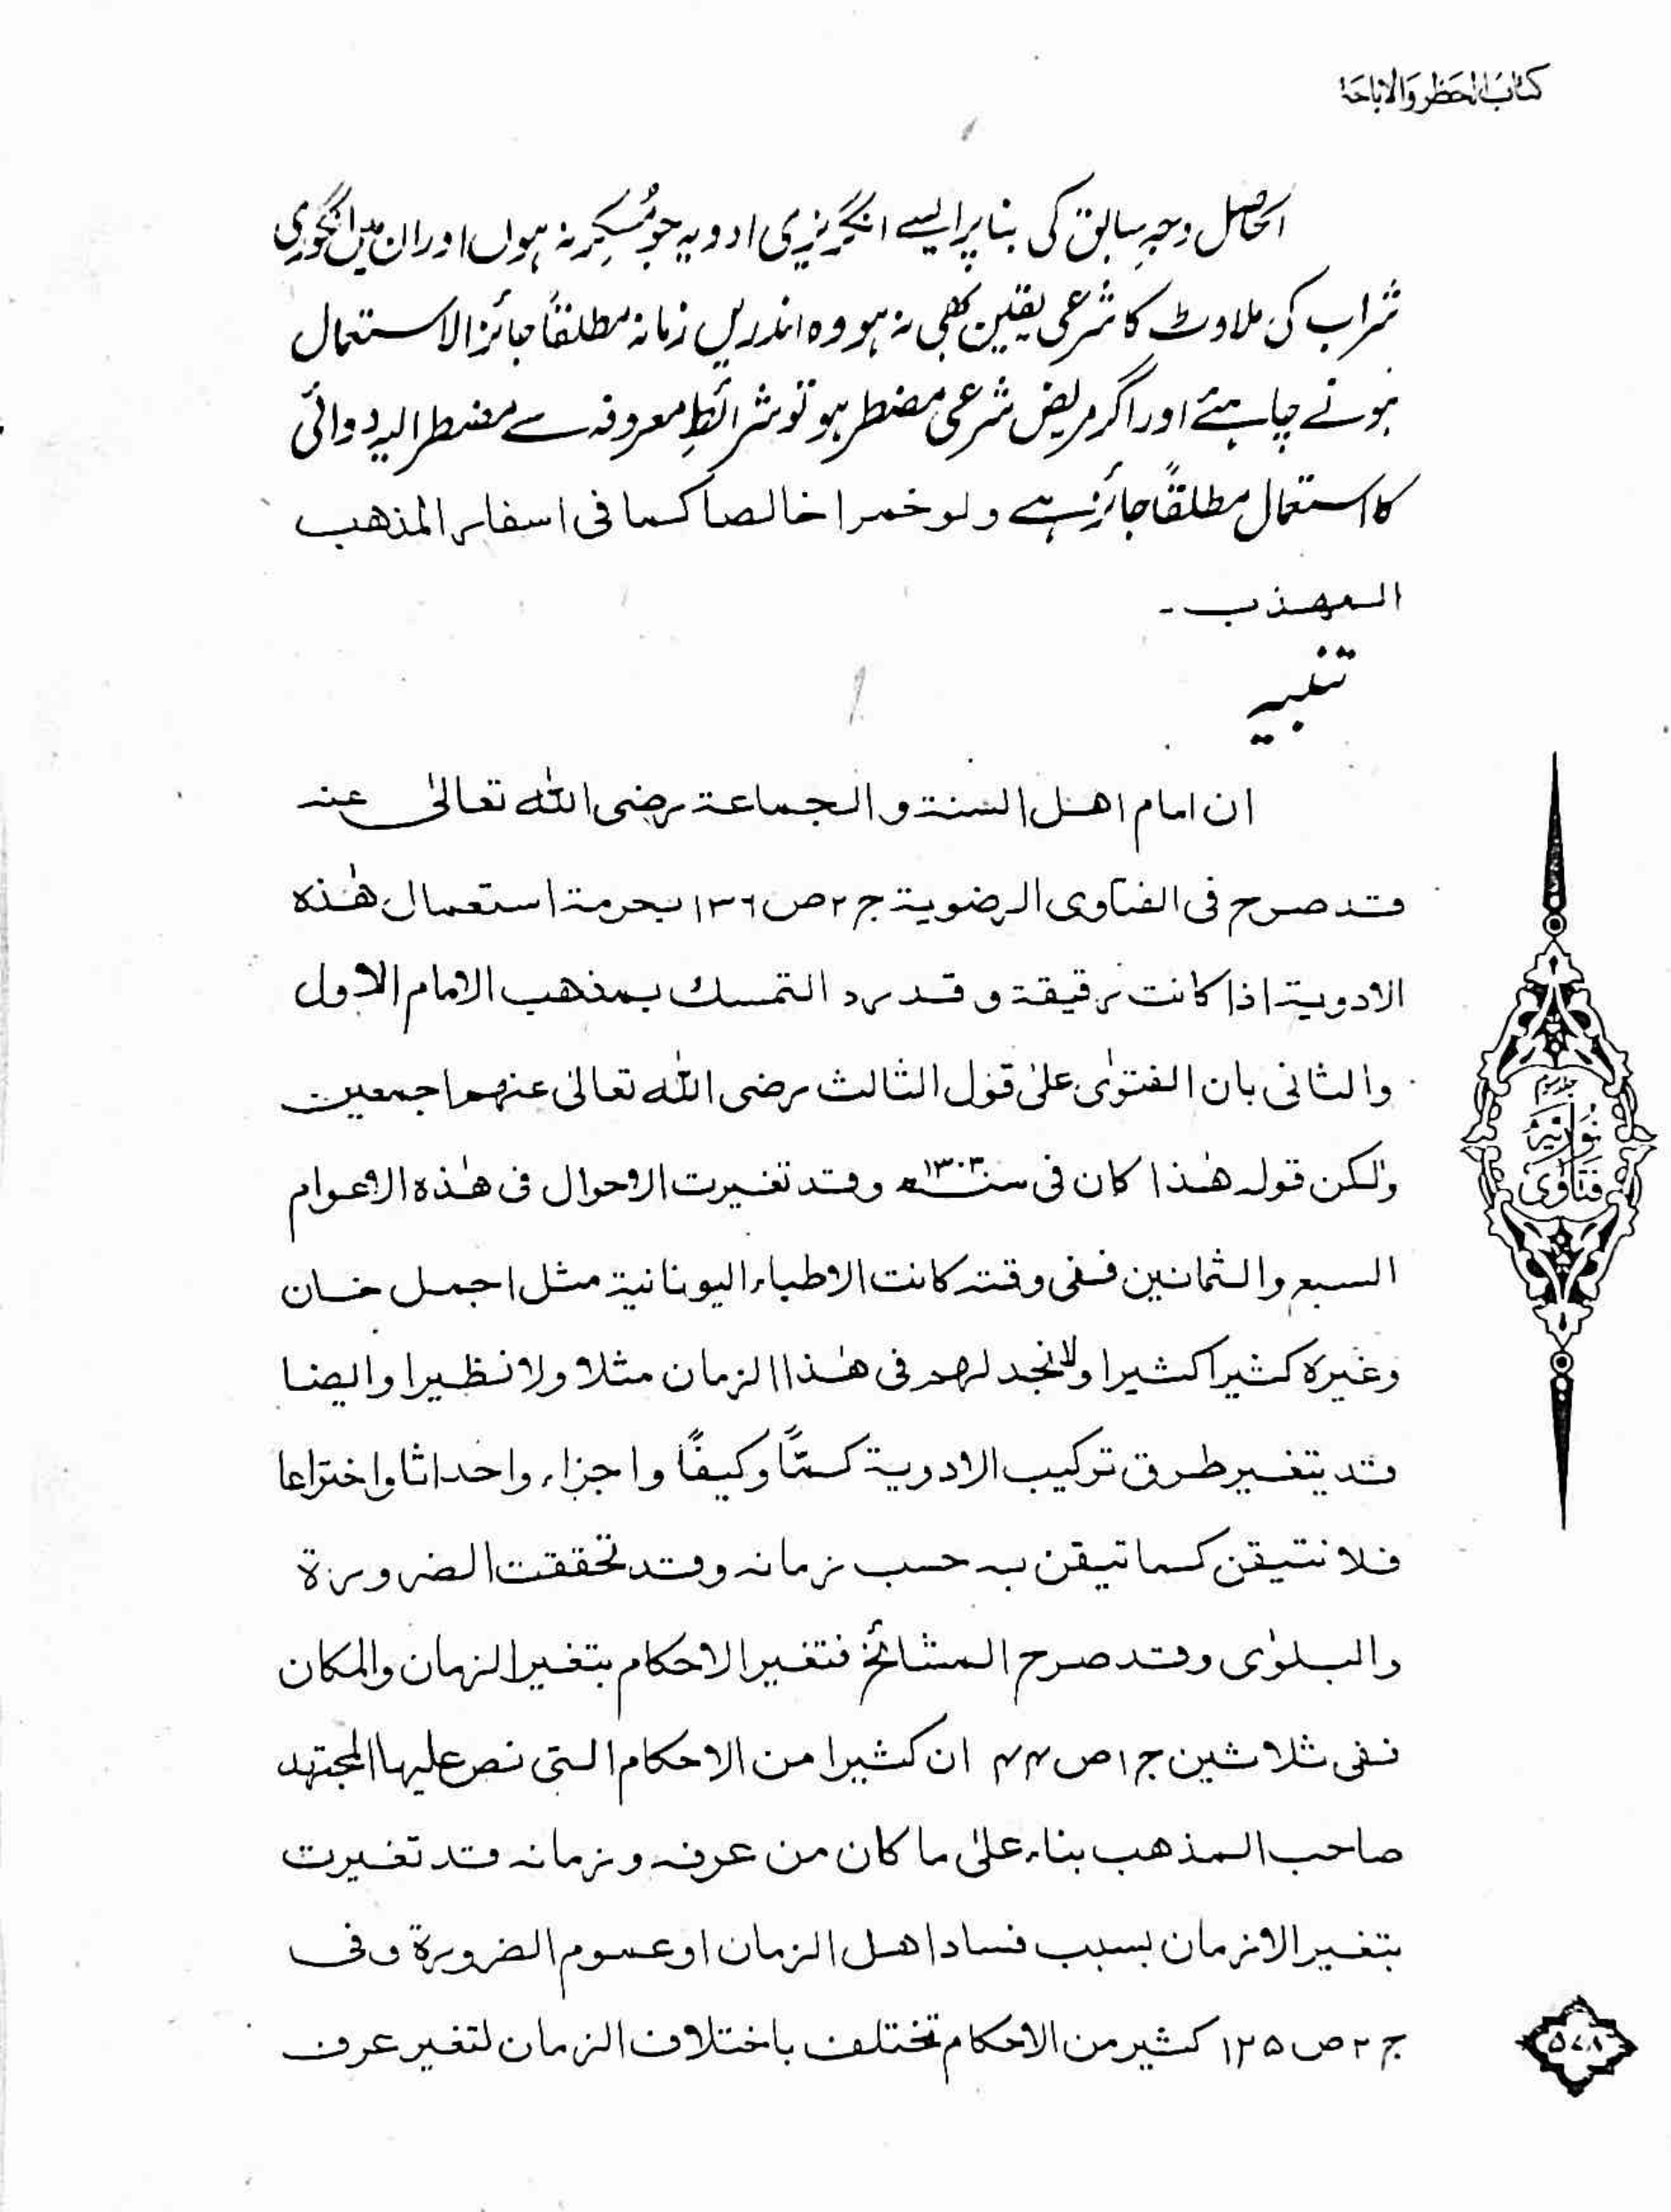 كتاب الحظر والاباحة
الحاصل وجہِ سابق کی بنا پر ایسے انگریزی ادویہ جو مُسکِر نہ ہوں اور ان میں انگوری
شراب کی ملاوٹ کا شرعی یقین بھی نہ ہو وہ اندریں زمانہ مطلقاً جائز الاستعمال
ہونے چاہئے اور اگر مریض شرعی مضطر ہو تو شرائطِ معروفہ سے مضطر الیہ دوائی
کا استعمال مطلقاً جائز ہے ولو خمرا خالصا کما فی اسفار المذهب
المهذب ـ
تنبیہ
ان امام اهل السنة و الجماعة رضی الله تعالیٰ عنہ
قد صرح فی الفتاوی الرضویة ج ۲ ص ۱۳۶ بحرمة استعمال هٰذه
الادویة اذا کانت رقیقة و قد رد التمسك بمذهب الامام الاول
والثانی بان الفتوٰی علیٰ قول الثالث رضی الله تعالیٰ عنهم اجمعین
ولٰکن قولہ هٰذا کان فی سنة ۱۳۰۳ھ وقد تغیرت الاحوال فی هٰذه الاعوام
السبع والثمانین ففی وقتہ کانت الاطباء الیونانیة مثل اجمل خان
وغیرہ کثیرا کثیرا ولا نجد لهم فی هٰذا الزمان مثلا ولا نظیرا وایضا
قد یتغیر طرق ترکیب الادویة کمًّا وکیفًا واجزاء واحداثا واختراعا
فلا نتیقن کما تیقن بہ حسب زمانہ وقد تحققت الضرورة
والبلوٰی وقد صرح المشائخ فتغیر الاحکام بتغیر الزمان والمکان
ففی ثلاثین ج ۱ ص ۴۴ ان کثیرا من الاحکام التی نص علیها المجتهد
صاحب المذهب بناء علیٰ ما کان من عرفہ وزمانہ قد تغیرت
بتغیر الازمان بسبب فساد اهل الزمان او عموم الضرورة وفی
ج ۲ ص ۱۲۵ کثیر من الاحکام تختلف باختلاف الزمان لتغیر عرف
نوریہ
فتاوی
۵۷۸